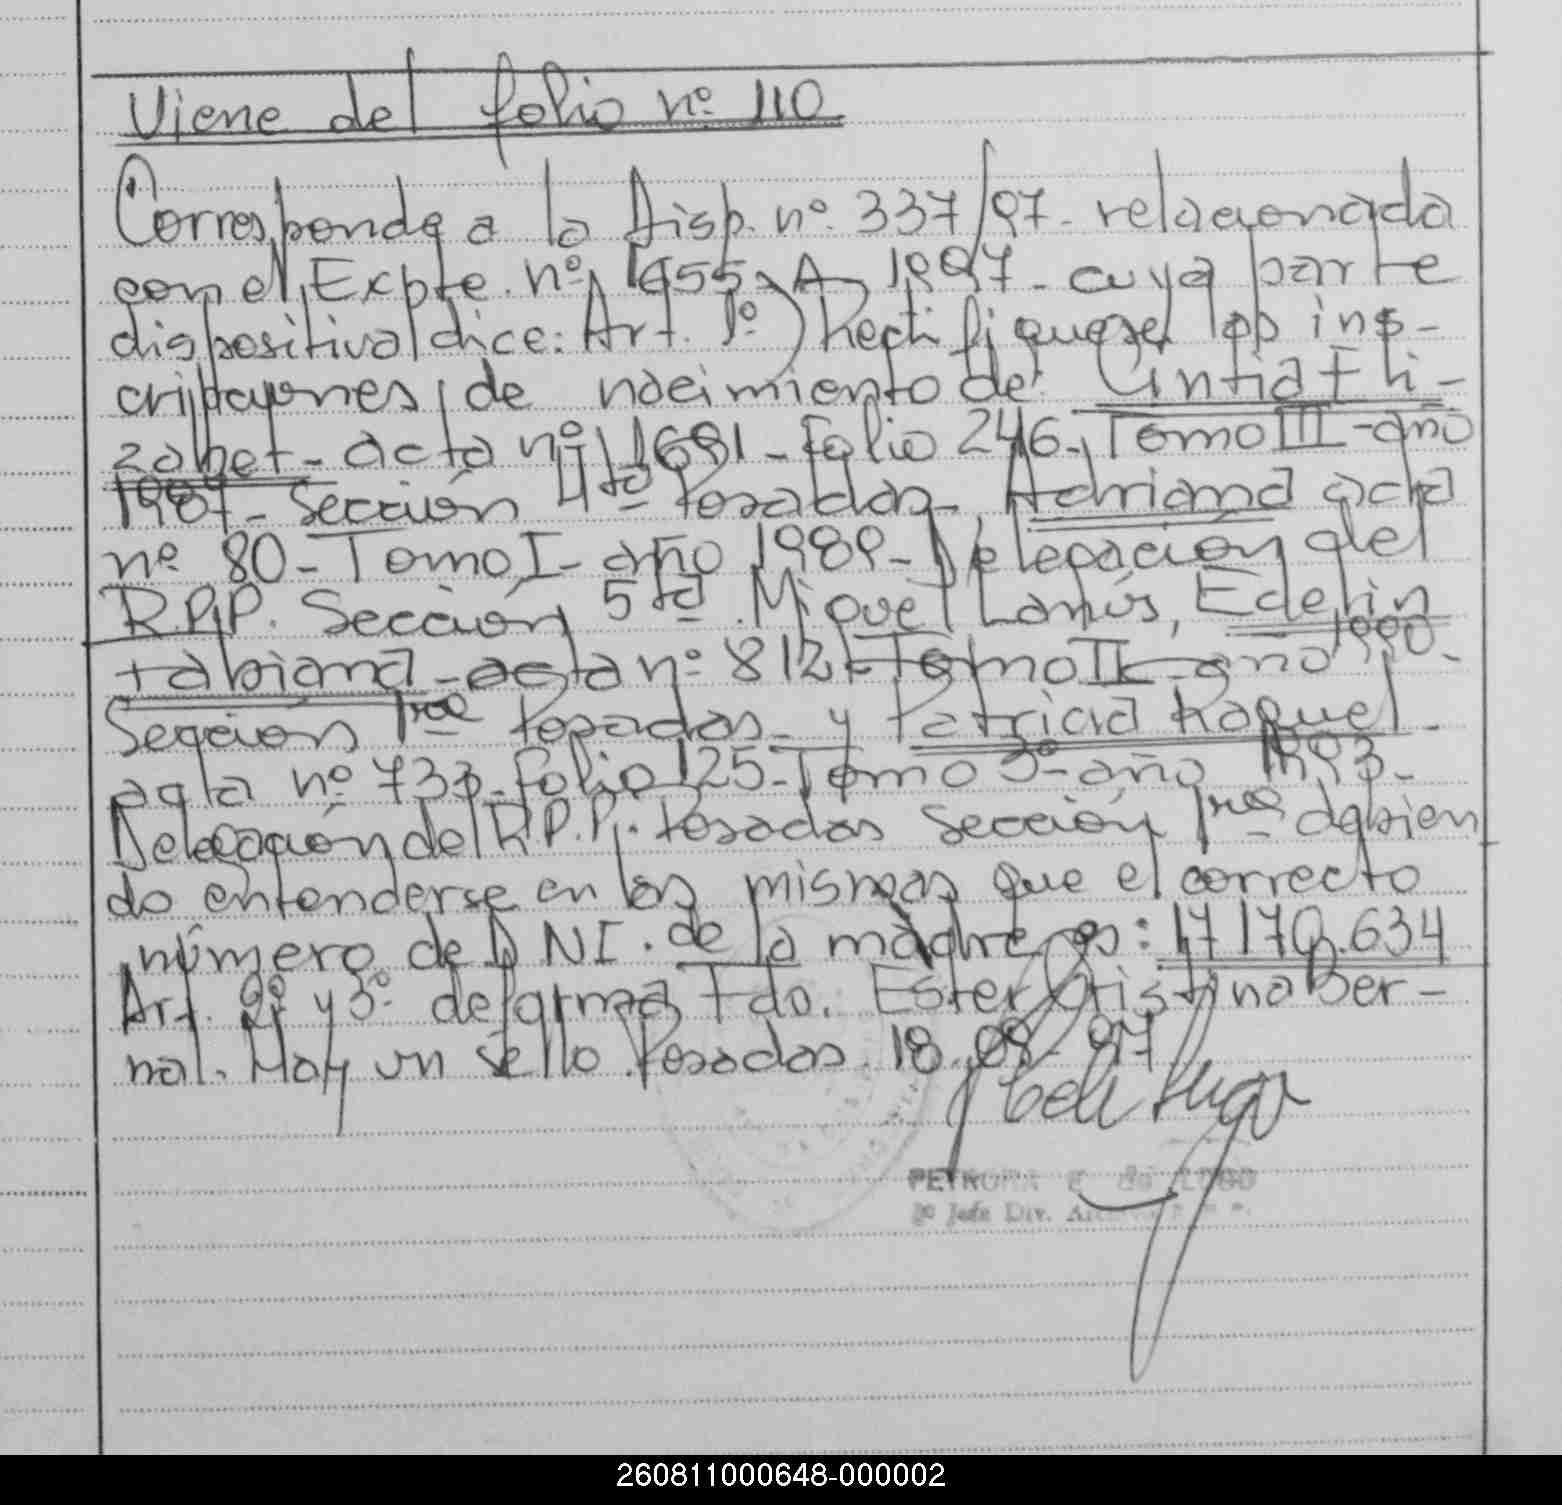 Viene del folio nº 110
Corresponde a la Disp. nº 337/97- relacionada
con el Expte. nº 1655-A-1997- cuya parte
dispositiva dice: Art. 1º) Rectifiquese las ins-
cripciones de nacimiento de: Cintia Eli-
zabet- acta nº 1681- folio 246- Tomo III- año
1987- Sección 4ta Posadas-, Adriana acta
nº 80- Tomo I- año 1989- Delegación del
R.P.P. Sección 5ta. Miguel Lanús, Edelin
Fabiana- acta nº 812- Tomo II- año 1990-
Sección 1ra Posadas- y Patricia Raquel-
acta nº 733- folio 125- Tomo 3º- año 1993-
Delegación del R.P.P. Posadas Sección 1ra debien
do entenderse en las mismas que el correcto
número de DNI. de la madre es: 17.170.634
Art. 2º y 3º de forma Fdo. Ester Cristina Ber-
nal. Hay un sello. Posadas. 18.08-97
PETRONA de LUGO
2º Jefe Div.
260811000648-000002